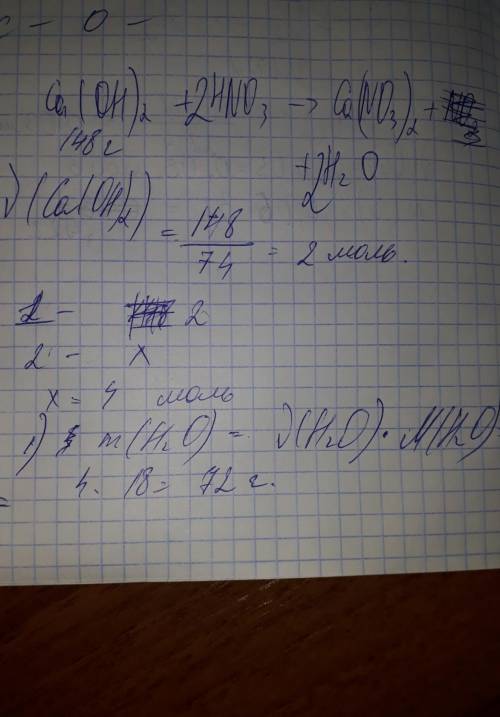 - O -
Ca(OH)₂ + 2HNO₃ → Ca(NO₃)₂ +
148 г
+ 2H₂O
ν(Ca(OH)₂) = 148/74 = 2 моль.
1 - 2
2 - x
x = 4 моль
1) m(H₂O) = ν(H₂O) · M(H₂O)
= 4 · 18 = 72 г.